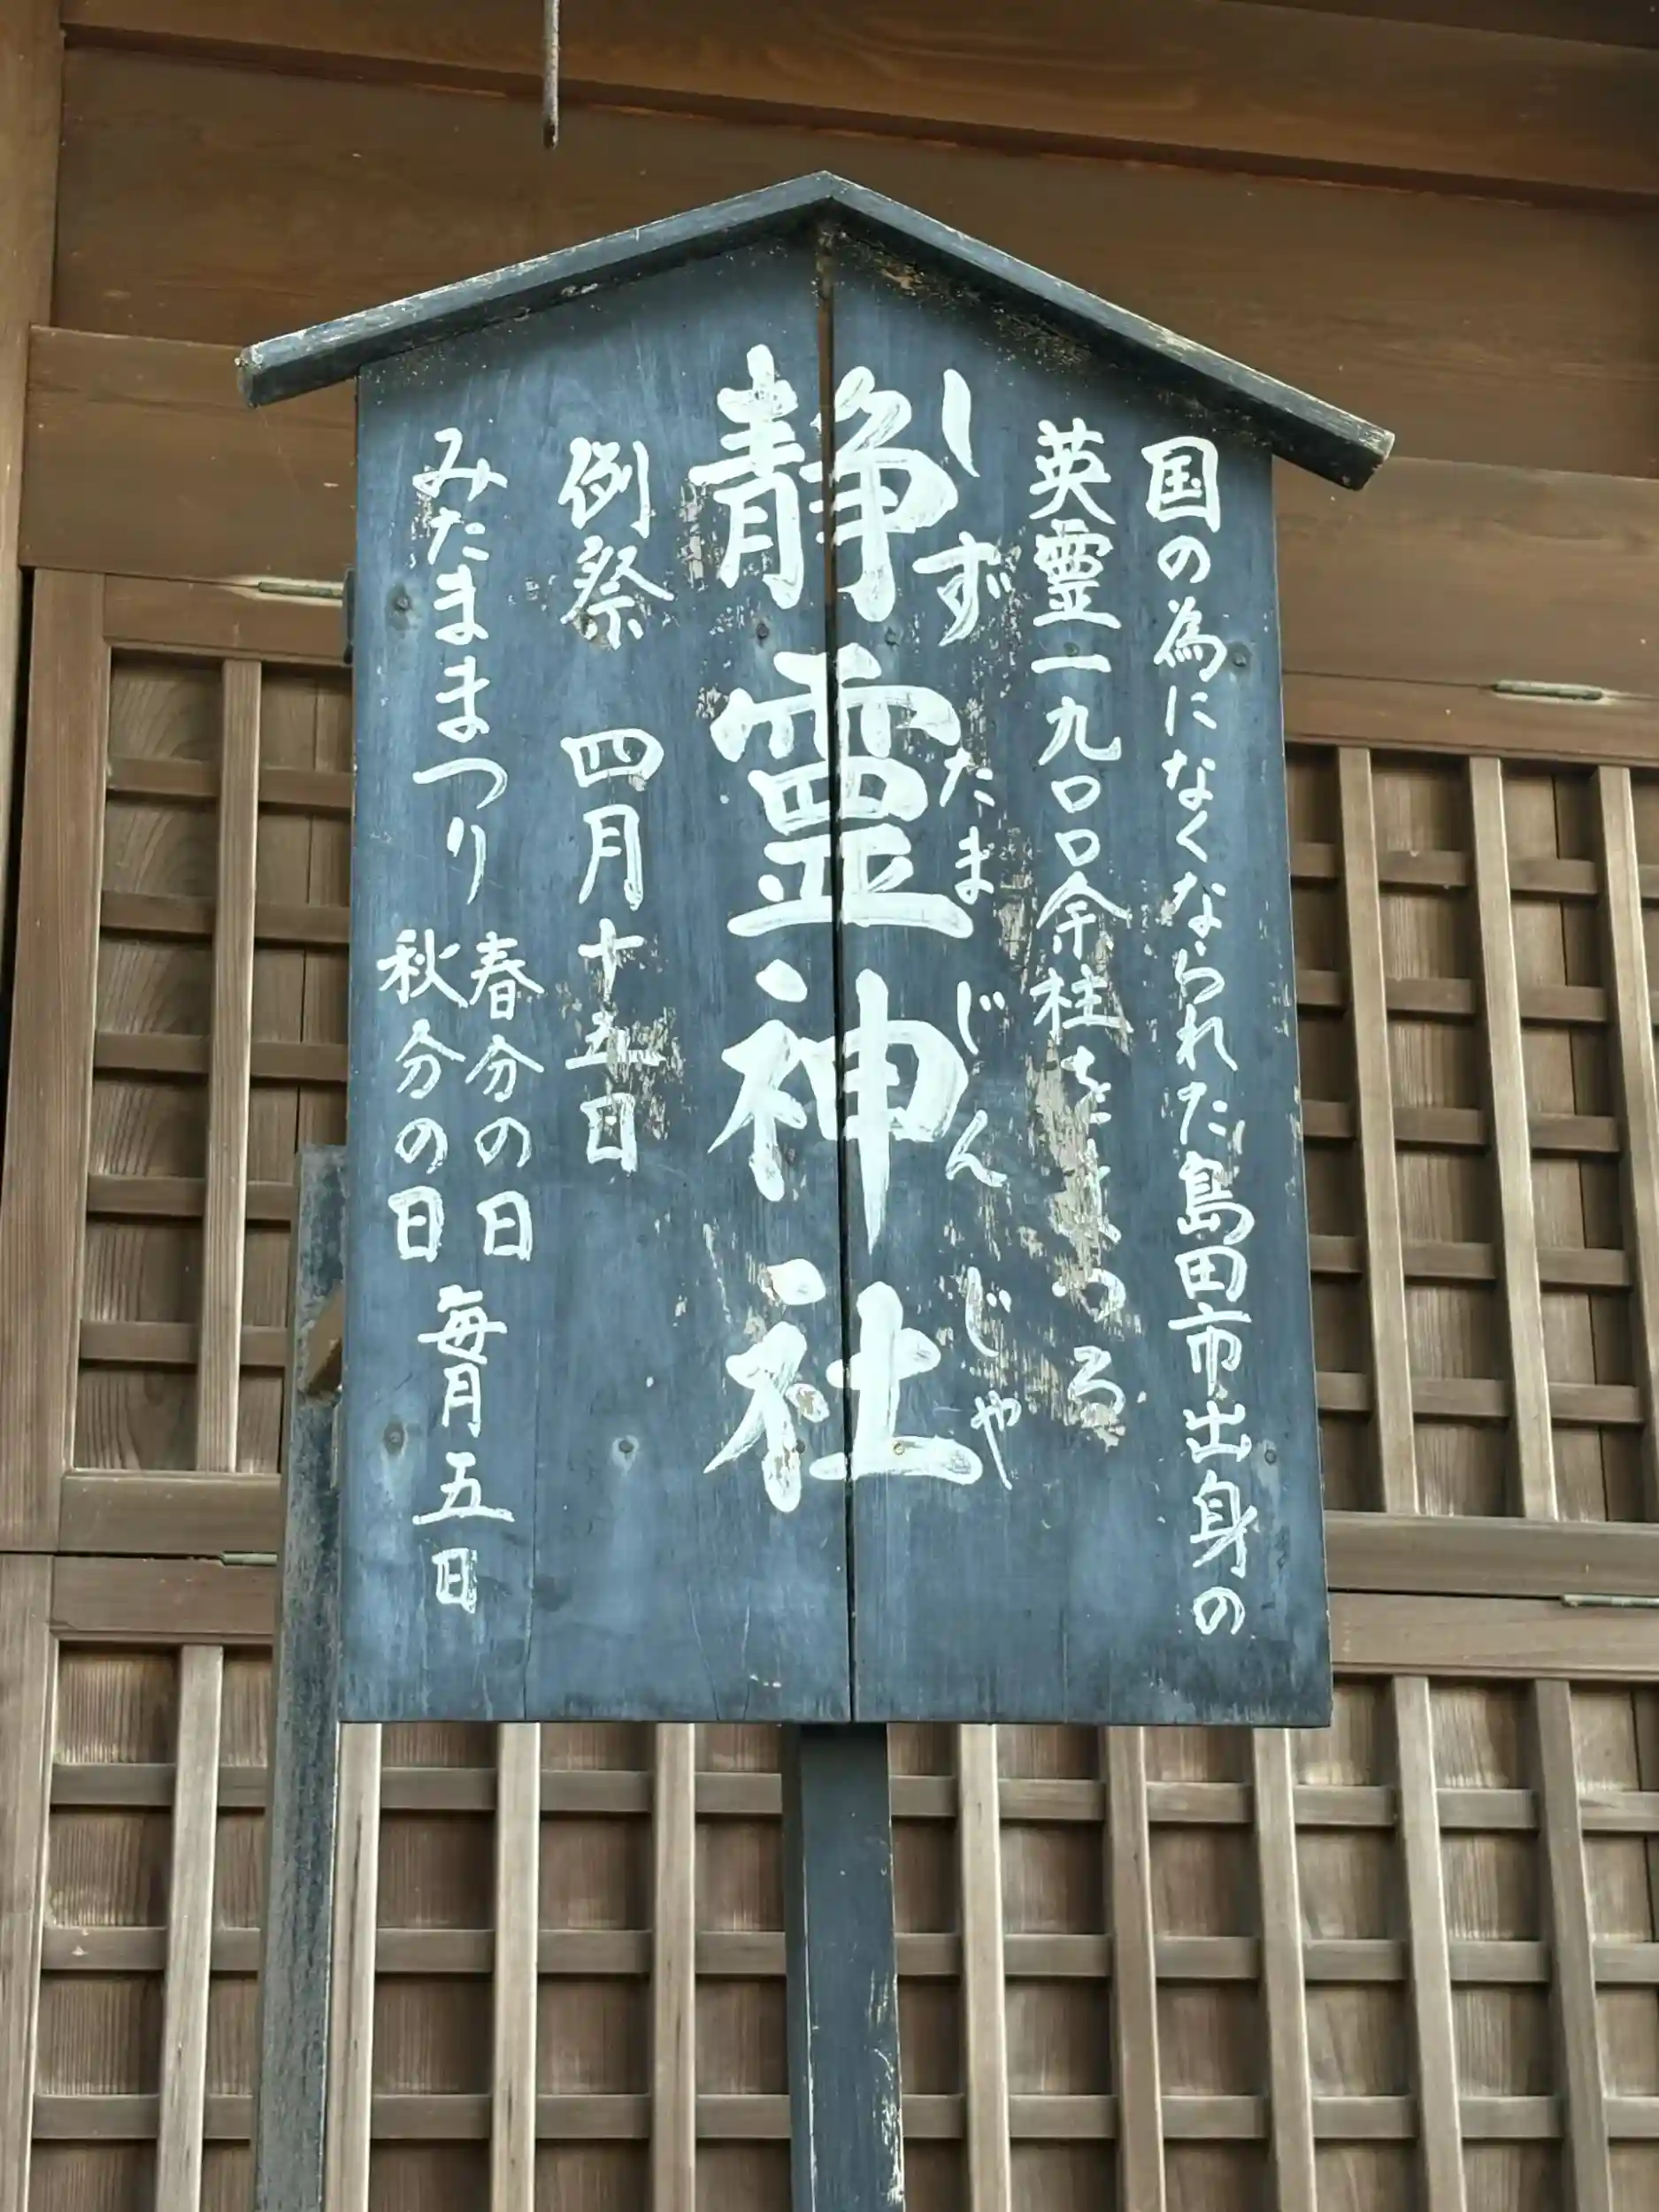 国の為になくなられた島田市出身の
英霊一九〇〇余柱をまつる
しずたまじんじゃ
静霊神社
例祭 四月十五日
みたままつり 春分の日 秋分の日 毎月五日